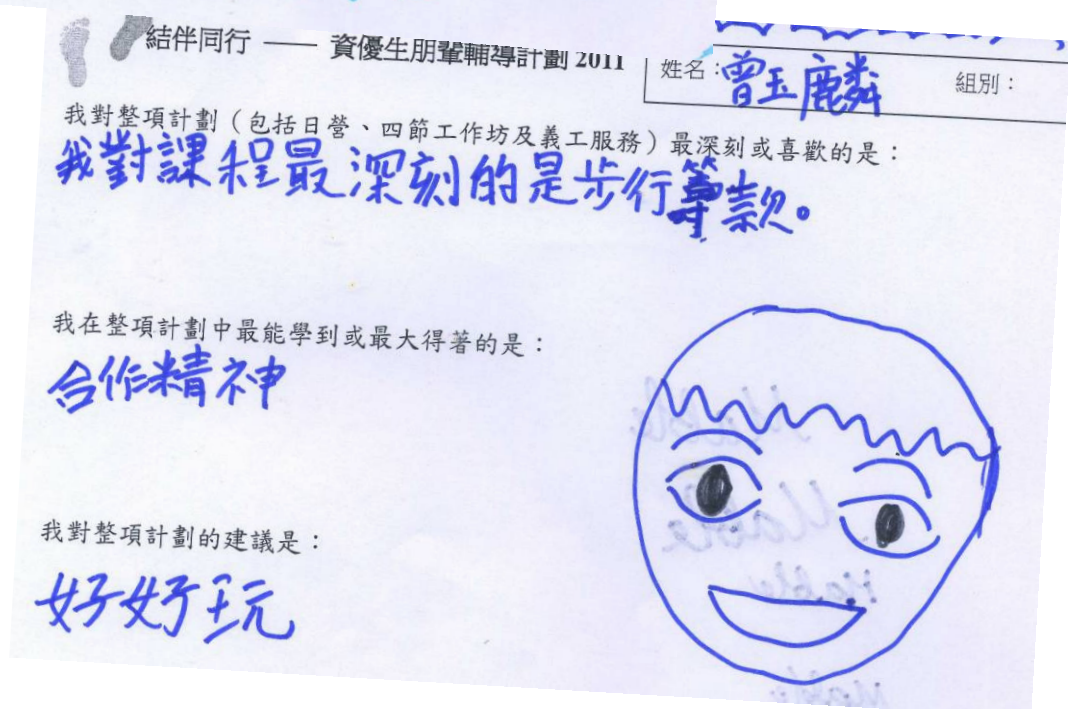 結伴同行 —— 資優生朋輩輔導計劃 2011
姓名：曾玉麟
組別：
我對整項計劃（包括日營、四節工作坊及義工服務）最深刻或喜歡的是：
我對課程最深刻的是步行籌款。
我在整項計劃中最能學到或最大得著的是：
合作精神
我對整項計劃的建議是：
好好玩
Mable
Mable
Mable
Mable